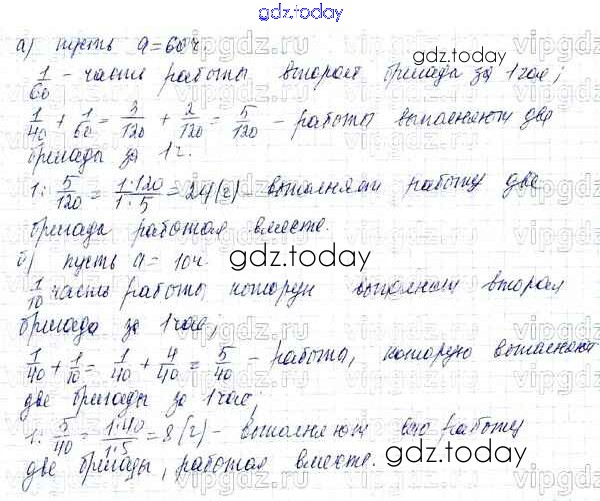 gdz.today
а) пусть a = 60 ч.
1/60 - часть работы второй бригады за 1 час;
1/40 + 1/60 = 3/120 + 2/120 = 5/120 - работы выполняют две
бригады за 1 ч.
1 : 5/120 = 1·120/1·5 = 24 (ч) - выполняют работу две
бригады работая вместе.
gdz.today
б) пусть a = 10 ч.
1/10 часть работы которую выполнит вторая
бригада за 1 час;
1/40 + 1/10 = 1/40 + 4/40 = 5/40 - работа, которую выполняют
две бригады за 1 час;
1 : 5/40 = 1·40/1·5 = 8 (ч) - выполняют всю работу
две бригады, работая вместе.
gdz.today